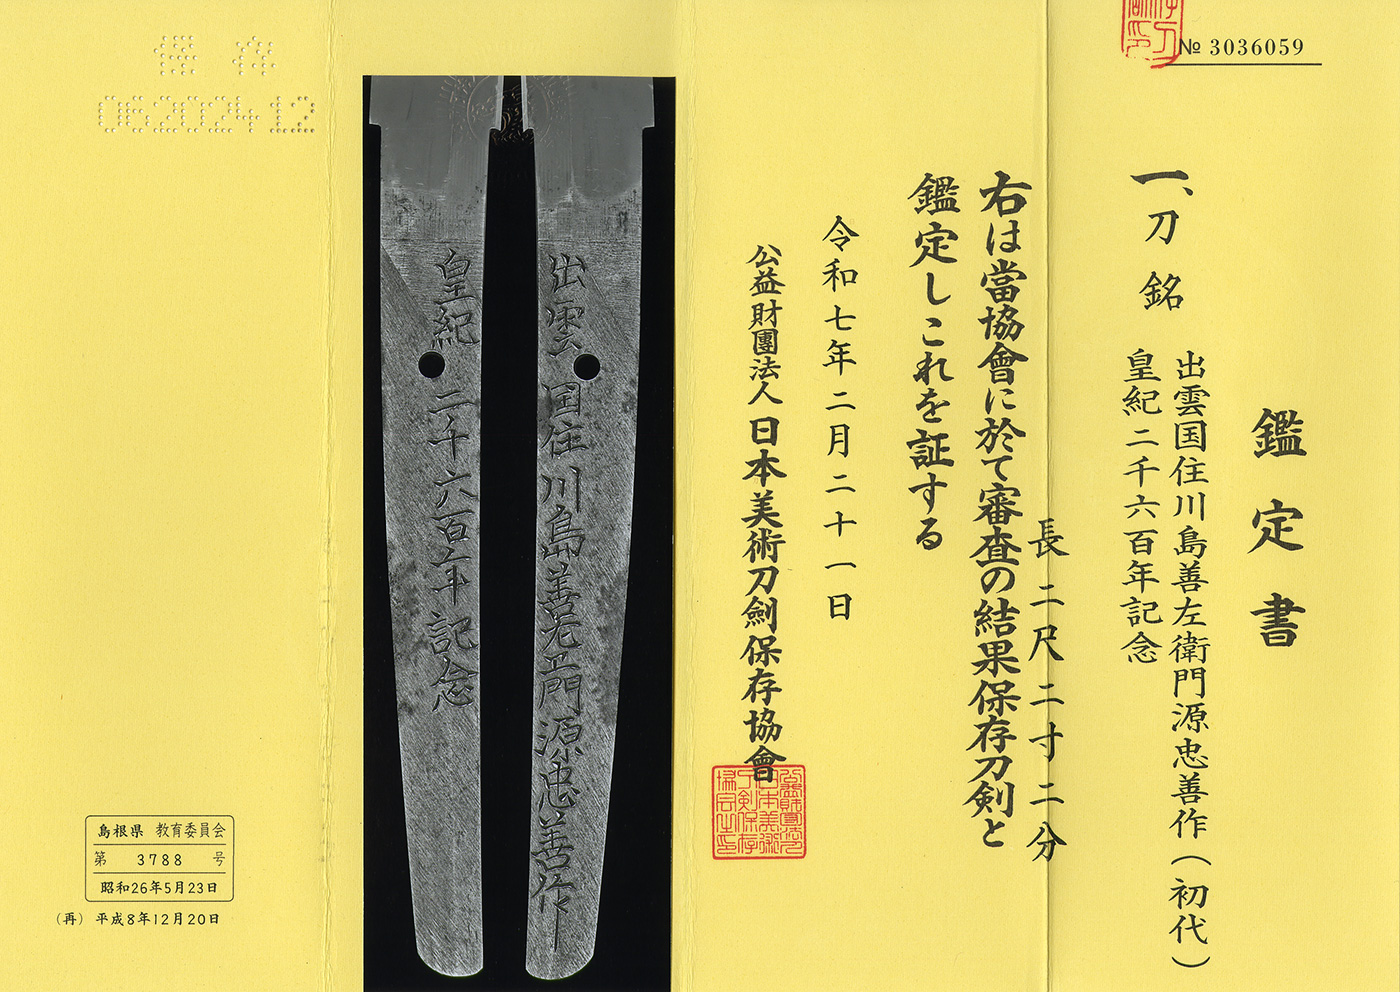 № 3036059
鑑定書
一、刀 銘
出雲国住川島善左衛門源忠善作(初代)
皇紀二千六百年記念
長 二尺二寸二分
右は當協會に於て審査の結果保存刀剣と
鑑定しこれを証する
令和七年二月二十一日
公益財團法人 日本美術刀劍保存協會
出雲国住川島善左衛門源忠善作
皇紀二千六百年記念
保存
06202412
島根県 教育委員会
第 3788 号
昭和26年5月23日
(再) 平成8年12月20日